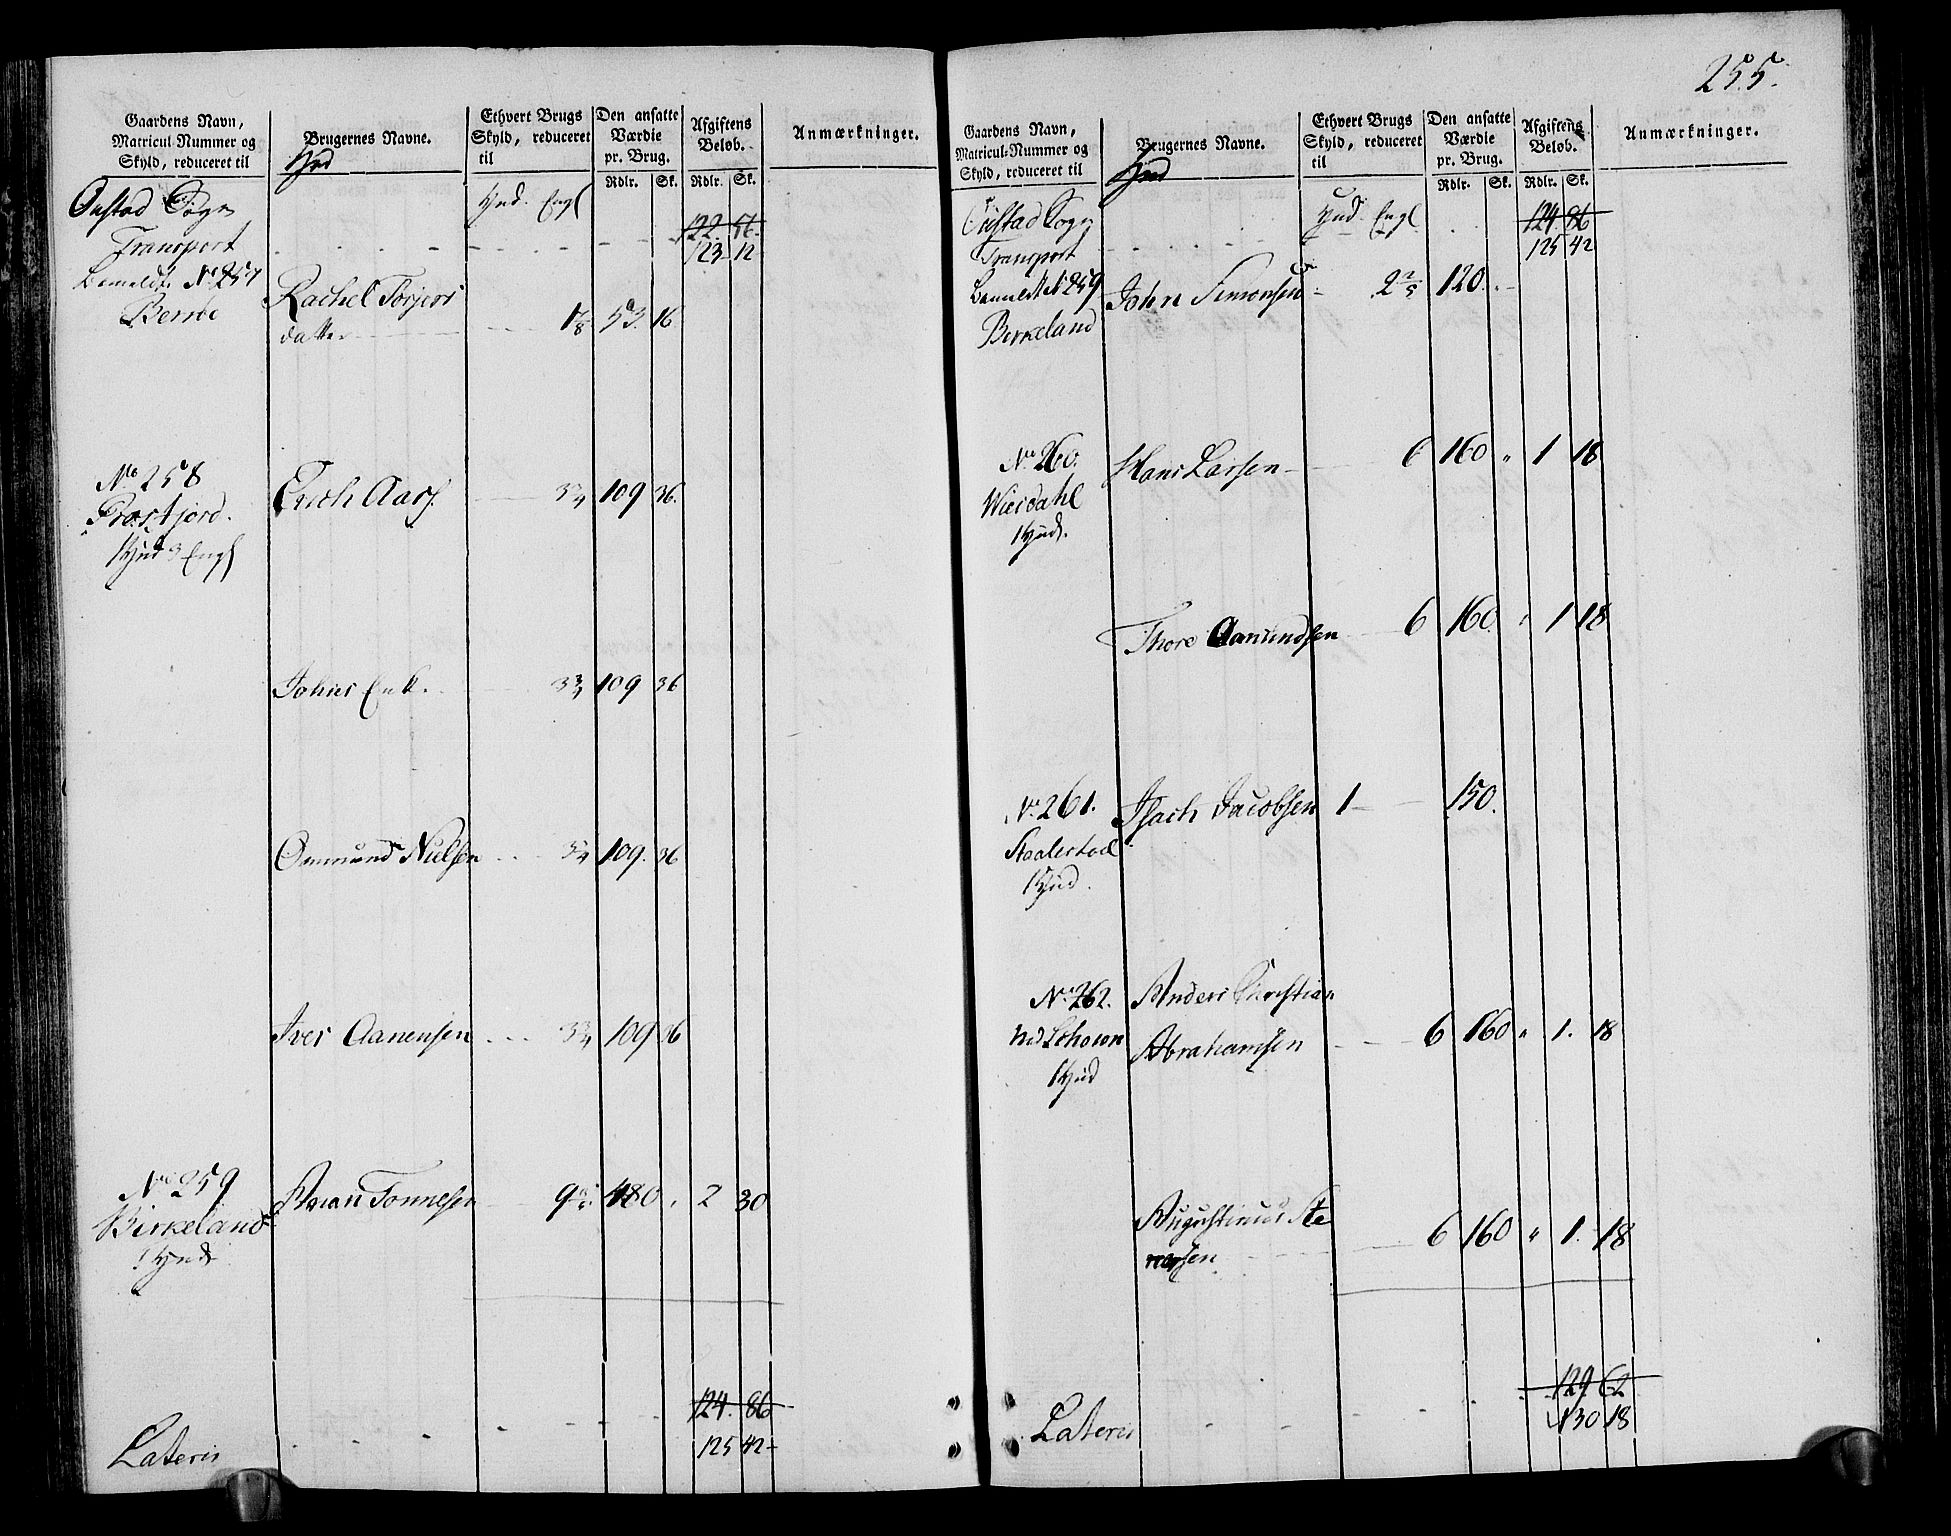 255.
Gaardens Navn,
Matricul-Nummer og
Skyld, reduceret til
Brugernes Navne.
Hud
Ethvert Brugs
Skyld, reduceret
til
Den ansatte
Værdie
pr. Brug.
Rdlr. Sk.
Afgiftens
Beløb.
Rdlr. Sk.
Anmærkninger.
Sogn Hud. Engl
122. 56.
Transport 123 12
No 257 Rachel Torjers
datter 53. 16
No 258
Erich Aars. 3¾ 109 36.
1 Hud 3 Engl
Johns Enk. 3¾ 109 36
Ommund Nielsen 3¾ 109. 36
Iver Aanensen 3¾ 109 36
No 259
Birkeland Tønnesen 480 2 30
1 Hud
124. 86
Lateris 125 42
Gaardens Navn,
Matricul-Nummer og
Skyld, reduceret til
Brugernes Navne.
Hud
Ethvert Brugs
Skyld, reduceret
til
Den ansatte
Værdie
pr. Brug.
Rdlr. Sk.
Afgiftens
Beløb.
Rdlr. Sk.
Anmærkninger.
Sogn Hud. Engl 124 86
Transport 125 42
No 259 John Simonsen 2⅖ 120
Birkeland
No 260. Hans Larsen 6 160 " 1 18
1 Hud.
Thore Aanundsen 6 160 " 1 18
No 261. Isach Jacobsen 1 150.
1 Hud.
No 262. Anders Christian
Abrahamsen 6 160 " 1. 18
1 Hud
Augustinus Ste
nersen 6 160 " 1. 18
129 62
Lateris 130 18